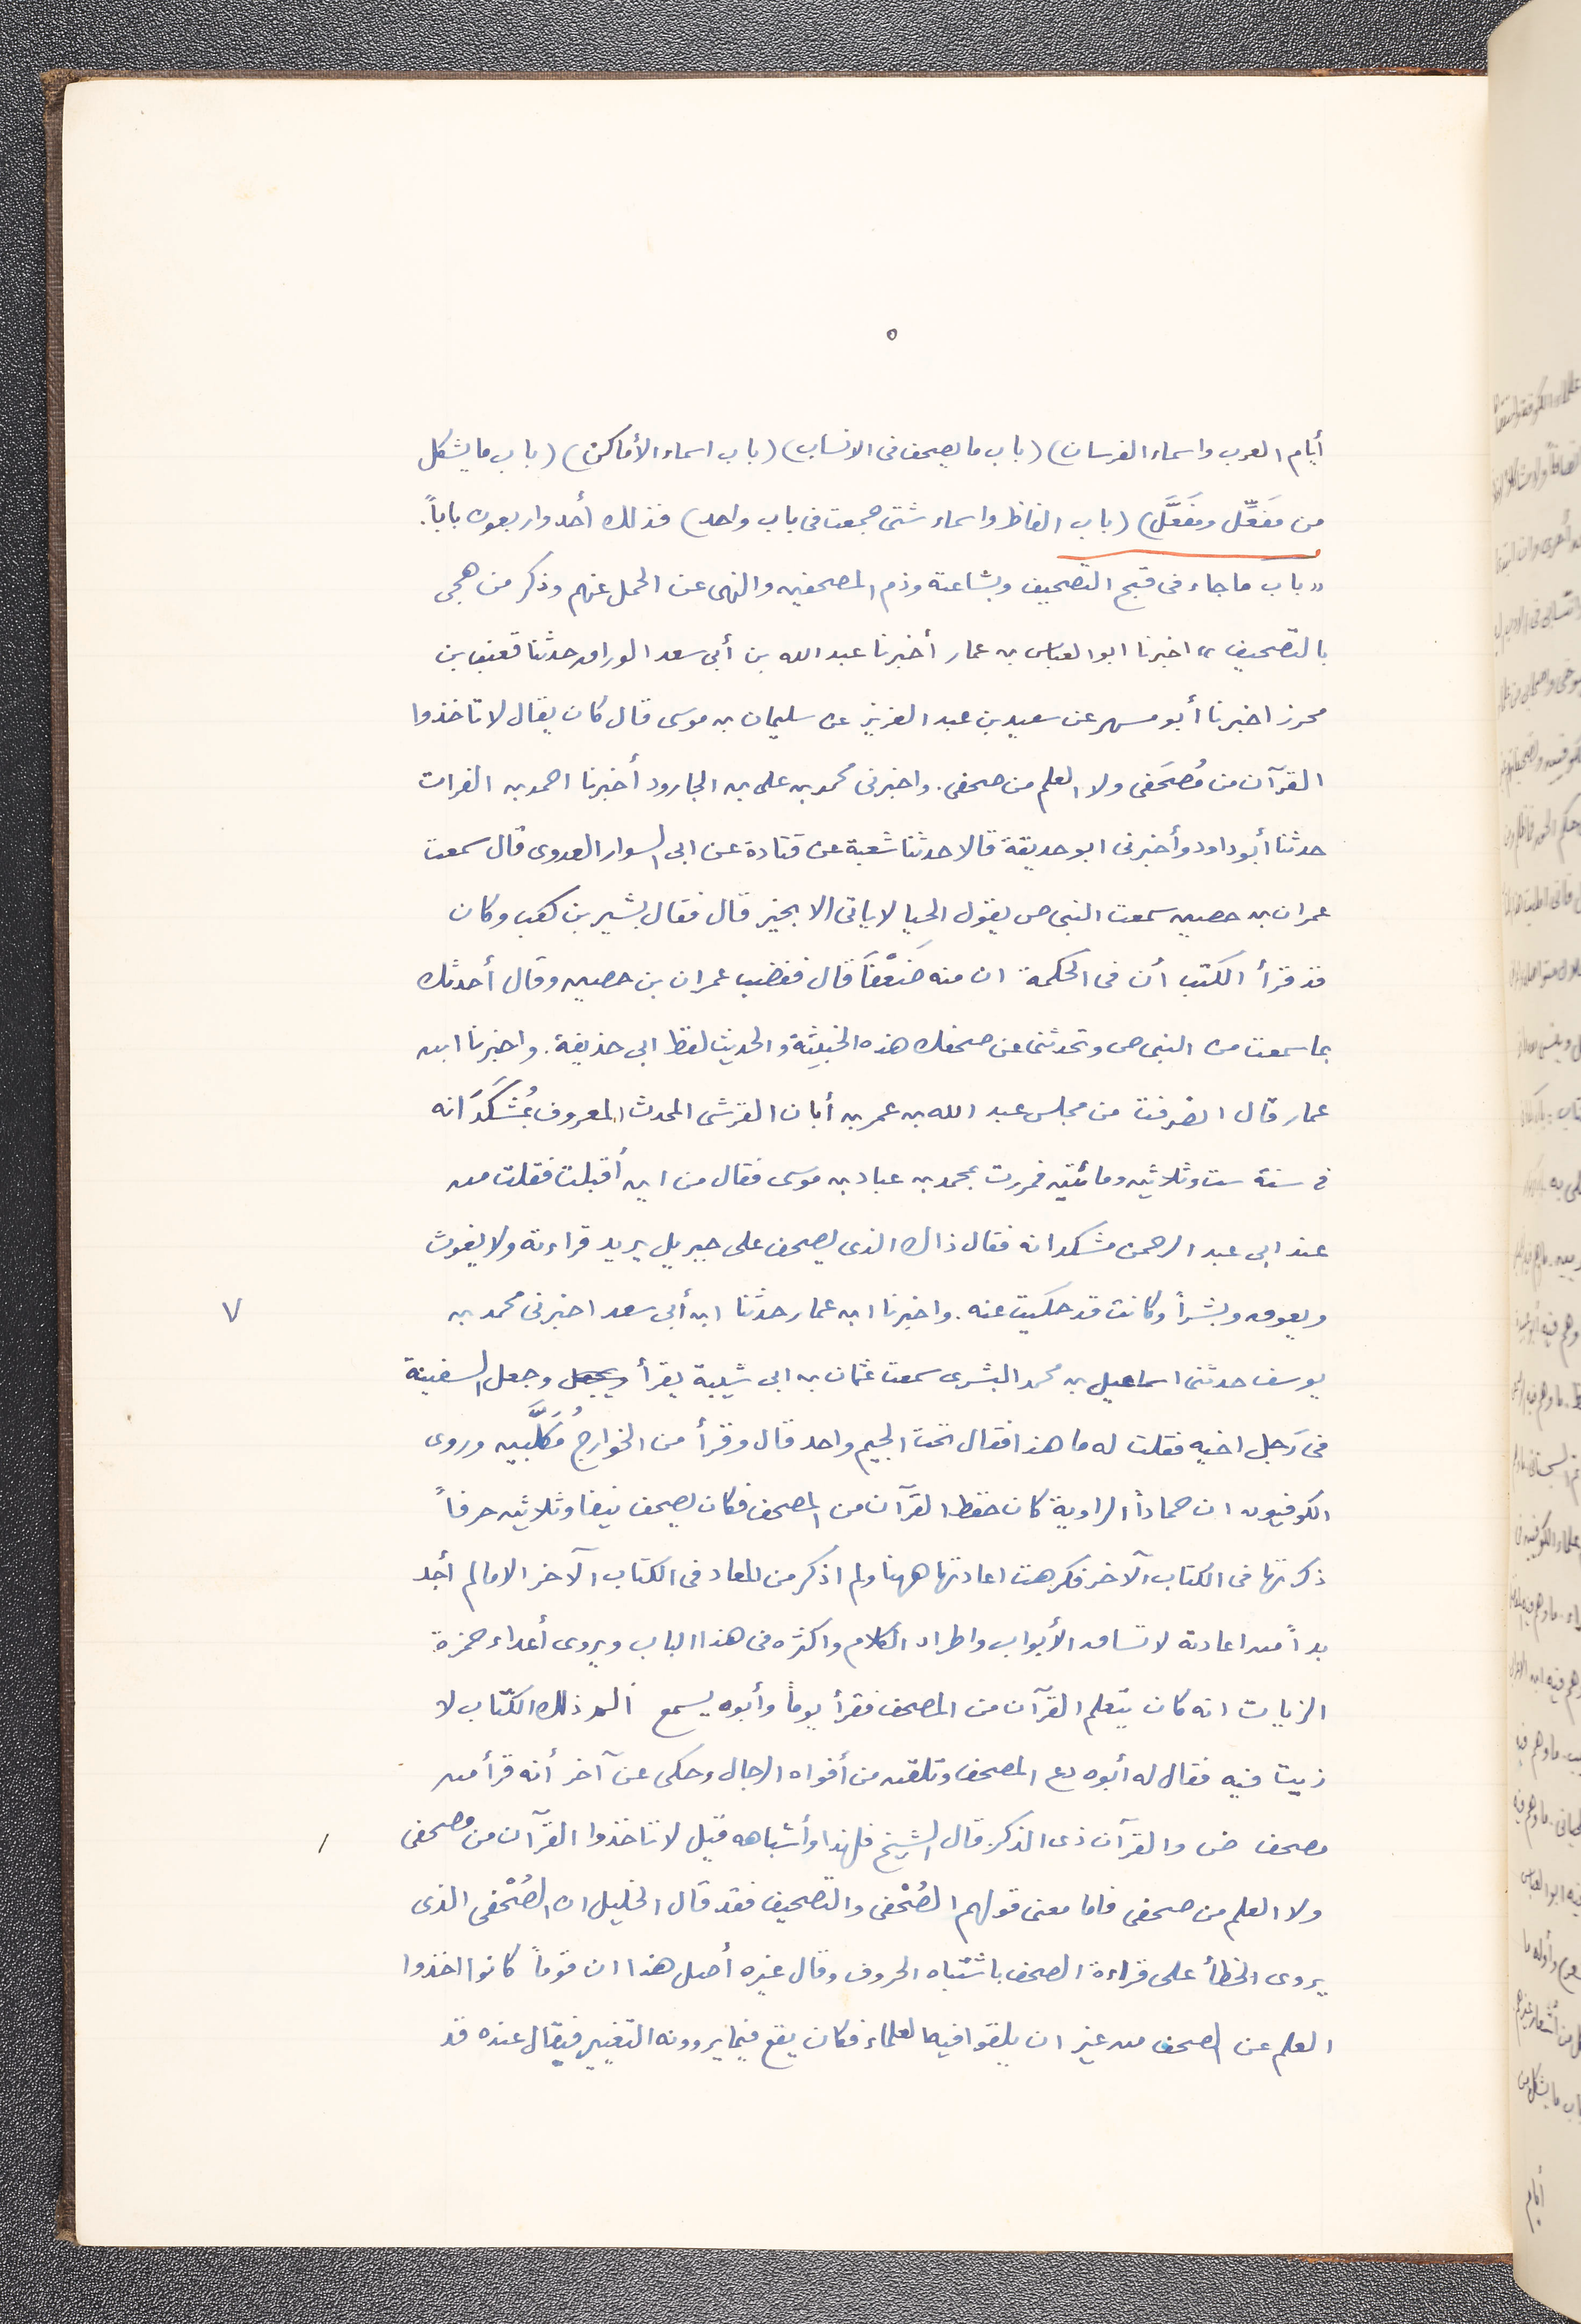 ٥
أيام العرب واسماء الفرسان) (باب ما يصحف فى الانساب) (باب اسماء الأماكن) (باب ما يشكل
من مَفعِّل ومَفعَّل) (باب الفاظ واسماء شتى جمعت فى باب واحد) فذلك أحد واربعون باباً.
«باب ما جاء فى قبح التصحيف وبشاعته وذم المصحفين والنهى عن الحمل عنهم وذكر من هجى
بالتصحيف» اخبرنا ابو العباس بن عمار أخبرنا عبد الله بن أبى سعد الوراق حدثنا قعنب بن
محرز اخبرنا أبو مسهر عن سعيد بن عبد العزيز عن سليمان بن موسى قال كان يقال لا تاخذوا
القرآن من مُصحَفى ولا العلم من صحفى. واخبرنى محمد بن على بن الجارود أخبرنا احمد بن الفرات
حدثنا أبو داود وأخبرنى ابو حديقة قالا حدثنا شعبة عن قتادة عن ابى السوار العدوى قال سمعت
عمران بن حصين سمعت النبى ص يقول الحيا لا ياتى الا بخير قال فقال بشير بن كعب وكان
قد قرأ الكتب أن فى الحكمة ان منه ضَعْفاً قال فغضب عمران بن حصين وقال أحدثك
بما سمعت من النبى ص وتحدثنى عن صحفك هذه الخبيثة والحديث لفظ ابى حذيفة. واخبرنا ابن
عمار قال انصرفت من مجلس عبد الله بن عمر بن أبان القرشى المحدث المعروف بمُشكَدَانه
فى سنة ست وثلاثين ومائتين فمررت بمحمد بن عباد بن موسى فقال من اين أقبلت فقلت من
عند ابى عبد الرحمن مشكدانه فقال ذاك الذى يصحف على جبريل يريد قراءته ولا يغوث
ويعوق وبشراً وكانت قد حكيت عنه. واخبرنا ابن عمار حدثنا ابن أبى سعد اخبرنى محمد بن
٧
يوسف حدثنى اسماعيل بن محمد البشرى سمعت عثمان بن ابى شيبة يقرأ ويجعل وجعل السفينة
فى رَجل اخيه فقلت له ما هذا فقال تحت الجيم واحد قال وقرأ من الخوارج مُكَلَّبين وروى
الكوفيون ان حماداً الراوية كان حفظ القرآن من المصحف فكان يصحف نيفا وثلاثين حرفاً
ذكرتها فى الكتاب الآخر فكرهت اعادتها ههنا ولم اذكر من المعاد فى الكتاب الآخر الا مالم أجد
بداً من اعادته لاتساق الأبواب واطراد الكلام واكثره فى هذا الباب ويروى أعداء حمزة
الزيات انه كان يتعلم القرآن من المصحف فقرأ يوماً وأبوه يسمع الم ذلك الكتاب لا
زيت فيه فقال له أبوه دع المصحف وتلقن من أفواه الرجال وحكى عن آخر أنه قرأ من
مصحف ض والقرآن ذى الذكر. قال الشيخ فلهذا وأشباهه قيل لا تاخذوا القرآن من مصحفى
/
ولا العلم من صحفى فاما معنى قولهم الصُحْفى والتصحيف فقد قال الخليل ان الصُحْفى الذى
يروى الخطأ على قراءة الصحف باشتباه الحروف وقال غيره أصل هذا ان قوماً كانوا اخذوا
العلم عن الصحف من غير ان يلقوا فيها العلماء فكان يقع فيما يروونه التغيير فيقال عنده قد